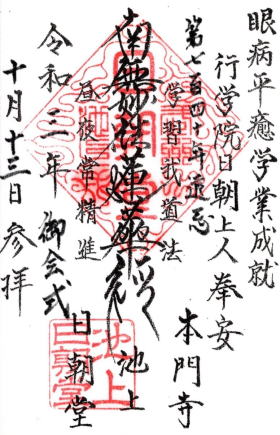 眼病平癒学業成就
行学院日朝上人奉安
第七百四十年遠忌
本門寺
学習我道法
南無妙法蓮華経
昼夜常精進
池上
日朝堂
御会式
令和三年
十月十三日参拝
池上
日朝堂